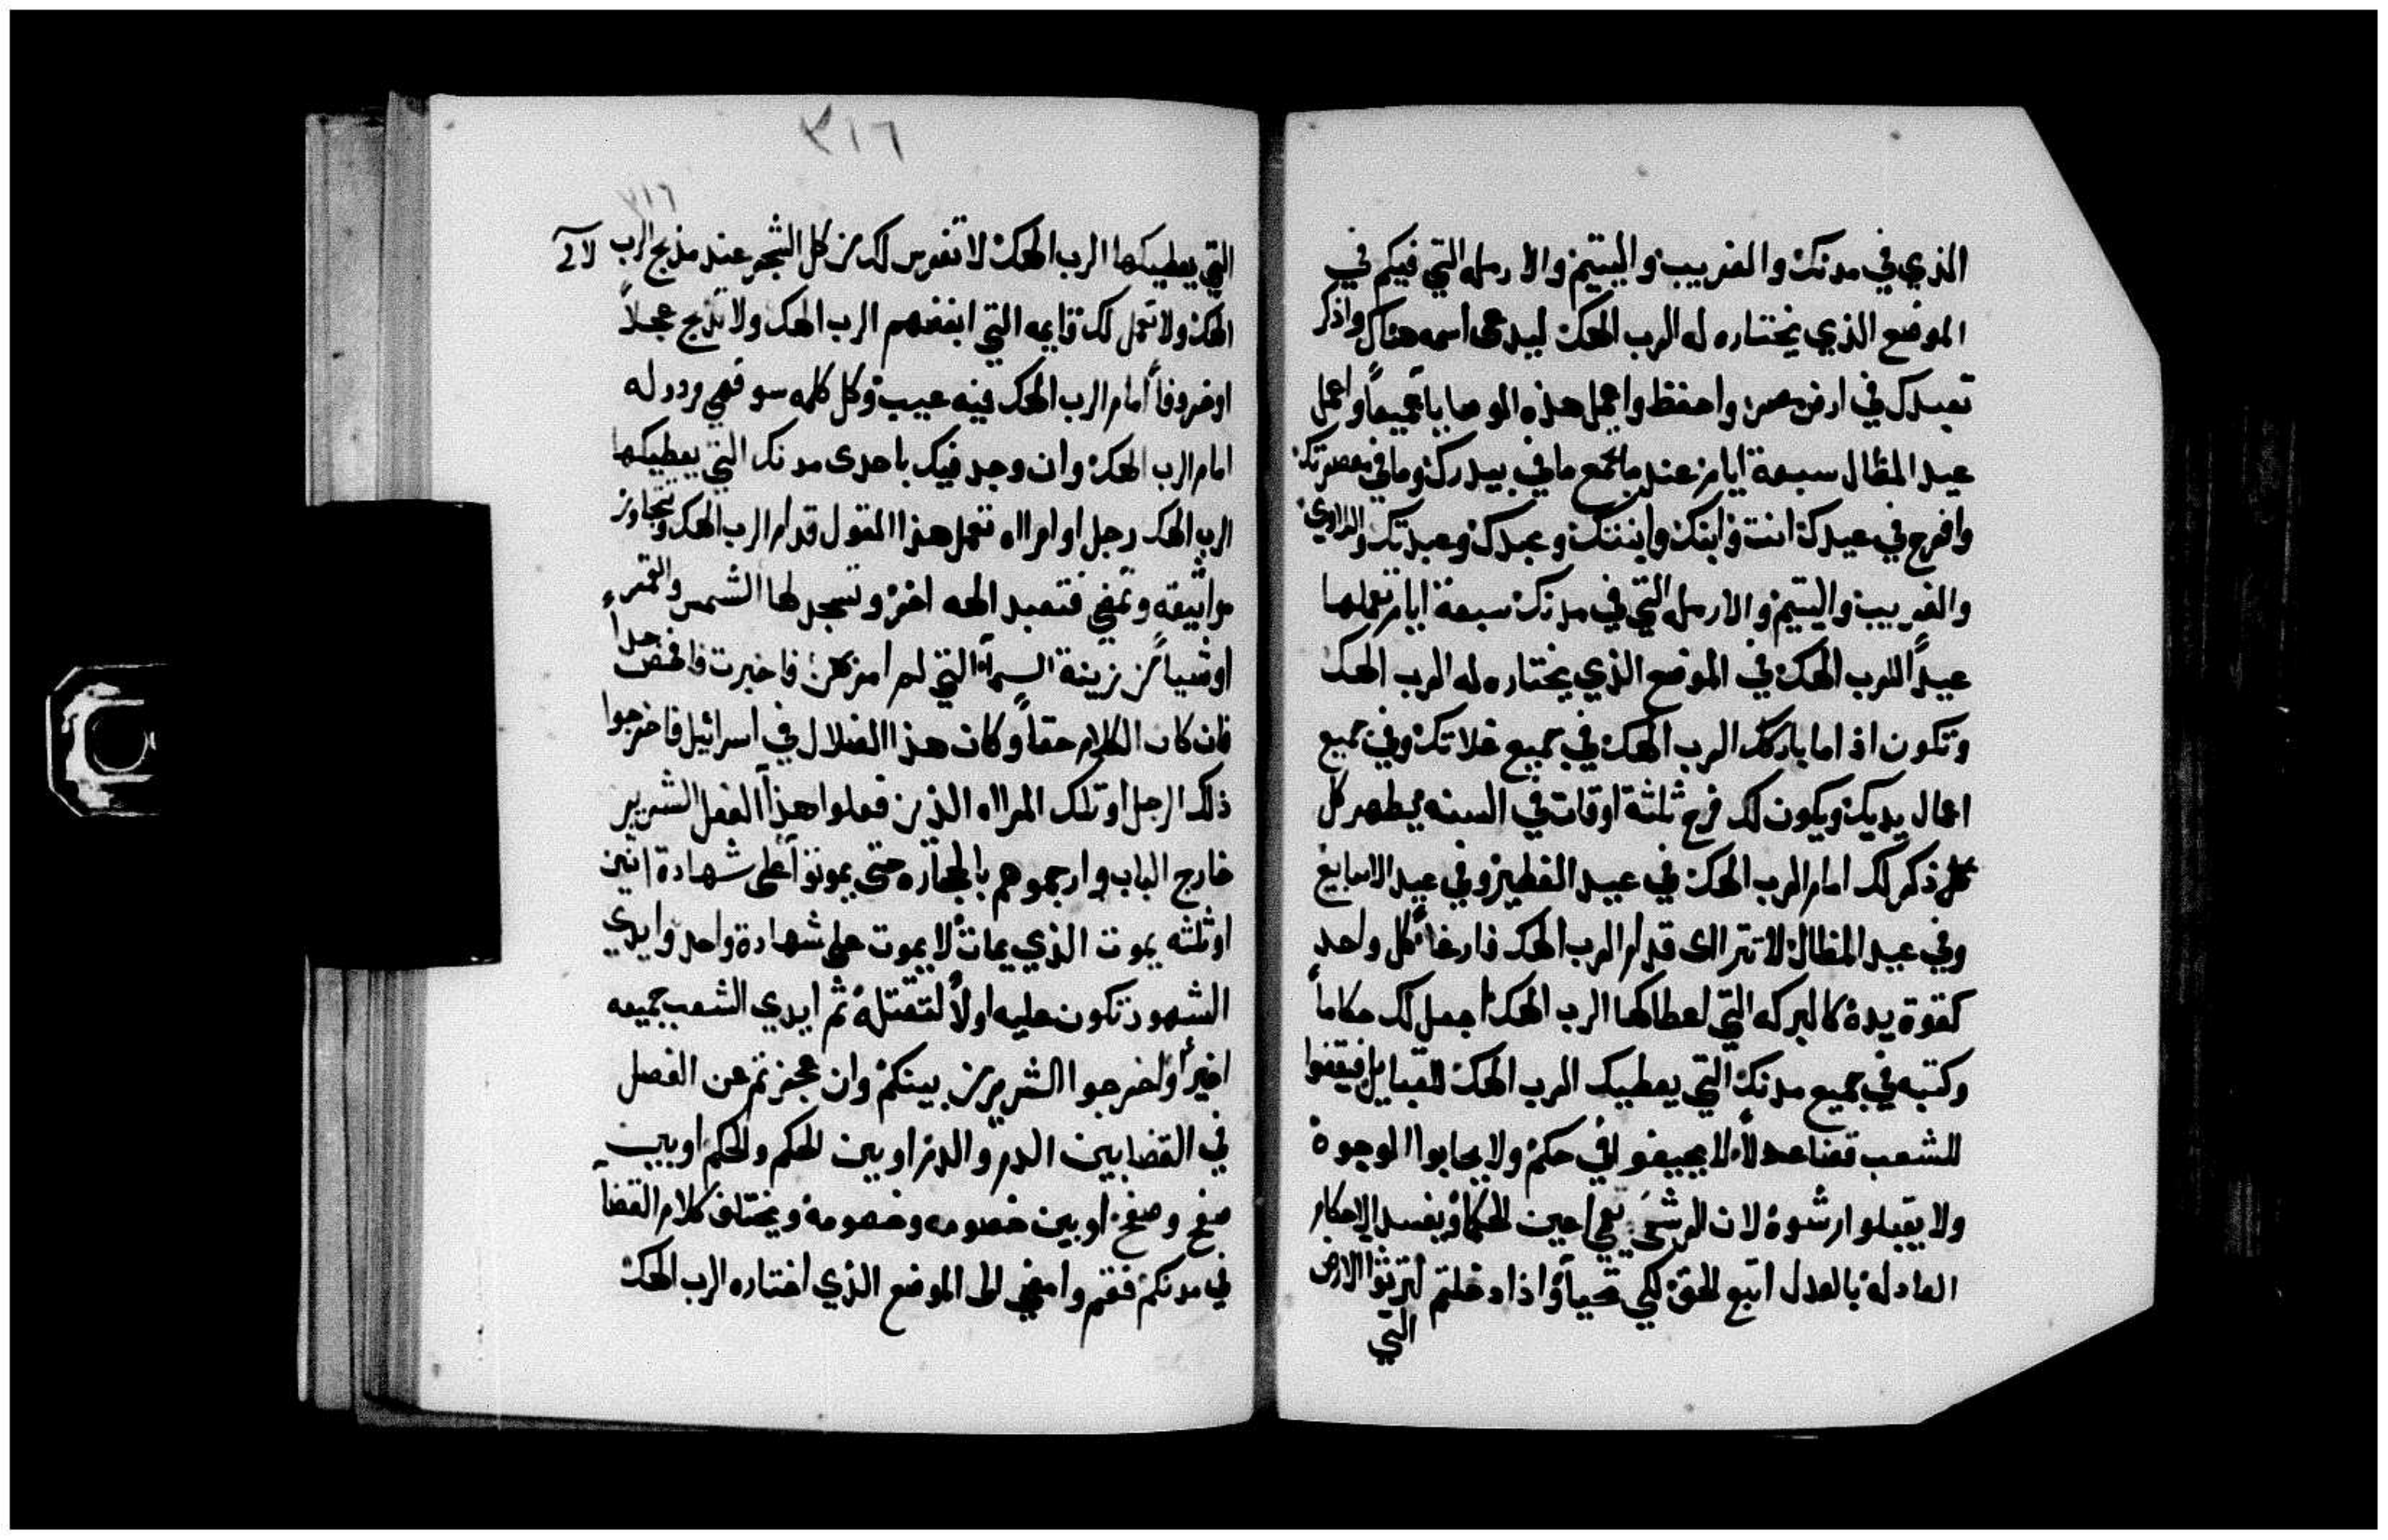 الذي في مدنك والغريب واليتيم والارمله التي فيكم في
الموضع الذي يختاره له الرب الهك ليدعى اسمه هناك واذكر
تعبدك في ارض مصر واحفظ واعمل هذه الوصايا جميعاً واعمل
عيد المظال سبعة ايام عند ما تجمع ما في بيدرك وما في معصرتك
وافرح في عيدك انت وابنك وابنتك وعبدك وعبدتك واللاوي
والغريب واليتيم والارمله التي في مدنك سبعة ايام تعملها
عيداً للرب الهك في الموضع الذي يختاره له الرب الهك
وتكون اذا ما باركك الرب الهك في جميع غلاتك وفي جميع
اعمال يديك ويكون لك فرح ثلثة اوقات في السنه يظهر كل
ذكر لك امام الرب الهك في عيد الفطير وفي عيد الاسابيع
وفي عيد المظال لا تترااى قدام الرب الهك فارغاً كل واحد
كقوة يده كالبركه التي اعطاكها الرب الهك اجعل لك حكاماً
وكتبه في جميع مدنك التي يعطيك الرب الهك للقبايل فيقضوا
للشعب قضا عدلاً لا يحيفوا في حكم ولا يحابوا الوجوه
ولا يقبلوا رشوه لان الرشى تعمي اعين الحكما ويفسد الاحكام
العادله بالعدل اتبع الحق لكي تحيا واذا دخلتم لترثوا الارض
التي
٣١٦
٣١٦
التي يعطيكها الرب الهك لا تغرس لك من كل الشجر عند مذبح الرب
الهك ولا تعمل لك قايمه التي ابغضهم الرب الهك ولا تذبح عجلاً
او خروفاً امام الرب الهك فيه عيب وكل كلمه سو فهي رذوله
امام الرب الهك وان وجد فيك باحدى مدنك التي يعطيكها
الرب الهك رجل او امرااه تعمل هذا القول قدام الرب الهك وتتجاوز
مواثيقه وتمضي فتعبد الهه اخر وتسجد لها الشمس والقمر
او شيا من زينة السمآ التي لم امركن فاخبرت فافحص جداً
فان كان الكلام حقاً وكان هذا الضلال في اسرائيل فاخرجوا
ذلك الرجل او تلك المرااه الذين فعلوا هذا الفعل الشرير
خارج الباب وارجموهم بالحجاره حتى يموتوا على شهادة اثنين
او ثلثه يموت الذي يمات لا يموت على شهادة واحد وايدي
الشهود تكون عليه اولاً لتقتله ثم ايدي الشعب جميعه
اخيراً واخرجوا الشرير من بينكم وان عجزتم عن الفصل
في القضا بين الدم والدم او بين الحكم والحكم او بين
صفع وصفع او بين خصومه وخصومه ويختلف كلام القضآ
في مدنكم فقم وامضي الى الموضع الذي اختاره الرب الهك